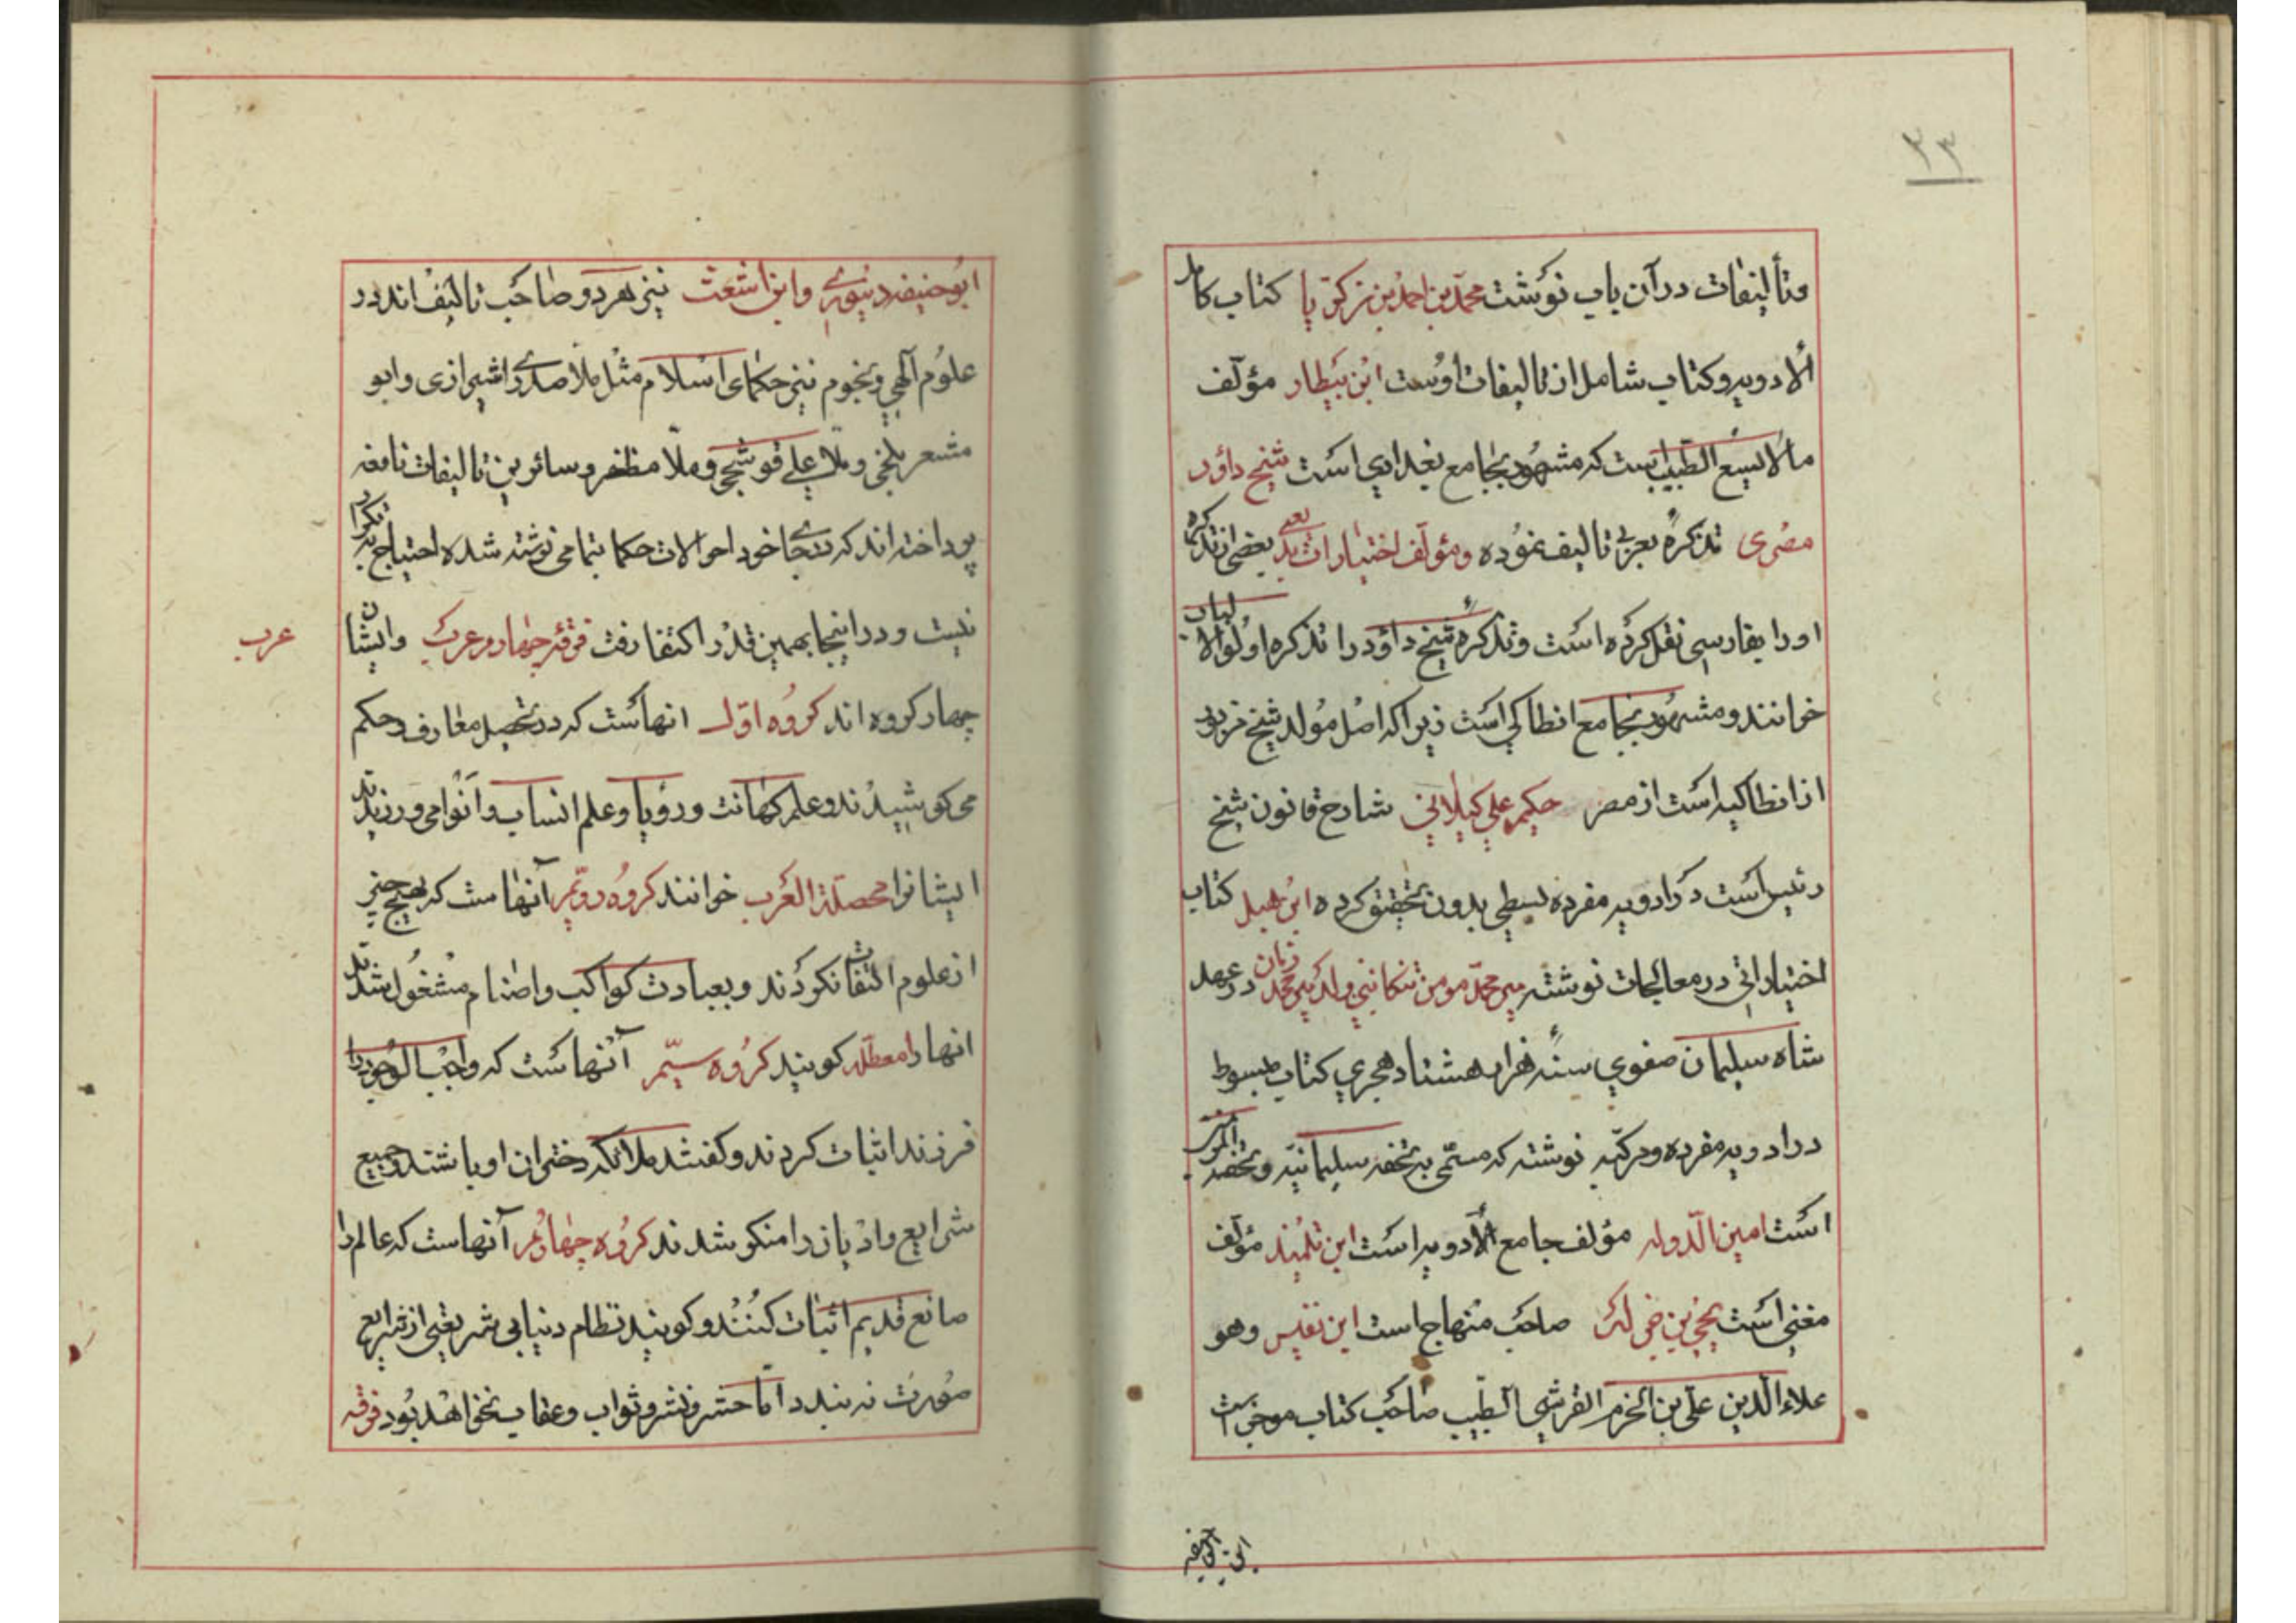 ۳۳
وتألیفات در آن باب نوشت محمد بن احمد بن زکریا کتاب کامل
الادویه و کتاب شامل از تالیفات اوست ابن بیطار مؤلف
مالایسع الطبیب است که مشهور بجامع بغدادی است شیخ داؤد
مصری تذکره بعربی تالیف نموده و مؤلف اختیارات بدیعی بعضی از تذکره
او را بفارسی نقل کرده است و تذکره شیخ داؤد را تذکره اولو الالباب
خوانند و مشهور بجامع انطاکی است زیرا که اصل مولد شیخ مزبور
از انطاکیه است از مصر حکیم علی کیلانی شارح قانون شیخ
رئیس است در ادویه مفرده بسطی بدون تحقیق کرده ابن هبل کتاب
اختیاراتی در معالجات نوشته میر محمد مومن تنکابنی ولد میر محمد زمان در عهد
شاه سلیمان صفوی سنه هزار هشتاد هجری کتاب مبسوط
در ادویه مفرده و مرکبه نوشته که مسمی به تحفه سلیمانیه و تحفة المومنین
است امین الدوله مؤلف جامع الادویه است ابن تلمیذ مؤلف
مغنی است یحیی بن جزله صاحب منهاج است ابن نفیس وهو
علاء الدین علی بن الحزم القرشی الطبیب صاحب کتاب موجز است
ابوحنیفه دینوری وابن اشعث نیز هر دو صاحب تالیف اند در
علوم آلهی و نجوم نیز حکمای اسلام مثل ملا صدرا شیرازی و ابو
مشعر بلخی و ملا علی قوشجی و ملا مظفر و سائرین تالیفات نافعه
پرداخته اند که بجا خود احوالات حکما بتمامی نوشته شده احتیاج بتکرار
نیست و در اینجا بهمین قدر اکتفا رفت فرقه چهارم عرب وایشان
عرب
چهار کروه اند کروه اول انهاست که در تحصیل معارف و حکم
می کوشیدند و علم کهانت و رؤیا و علم انساب و انوا می ورزیدند
ایشانرا محصلة العرب خوانند کروه دویم آنهاست که بهیچ چیز
از علوم التفات نکردند و بعبادت کواکب و اصنام مشغول شدند
انها را معطله کویند کروه سیّم آنهاست که واجب الوجود را
فرزند اثبات کردند و کفتند ملائکه دختران او باشند و جمیع
شرایع و ادیان را منکر شدند کروه چهارم آنهاست که عالم را
صانع قدیم اثبات کنند و کویند نظام دنیا بی شریعتی از شرایع
صورت نه بندد امّا حشر و نشر و ثواب و عقاب نخواهد بود فرقه